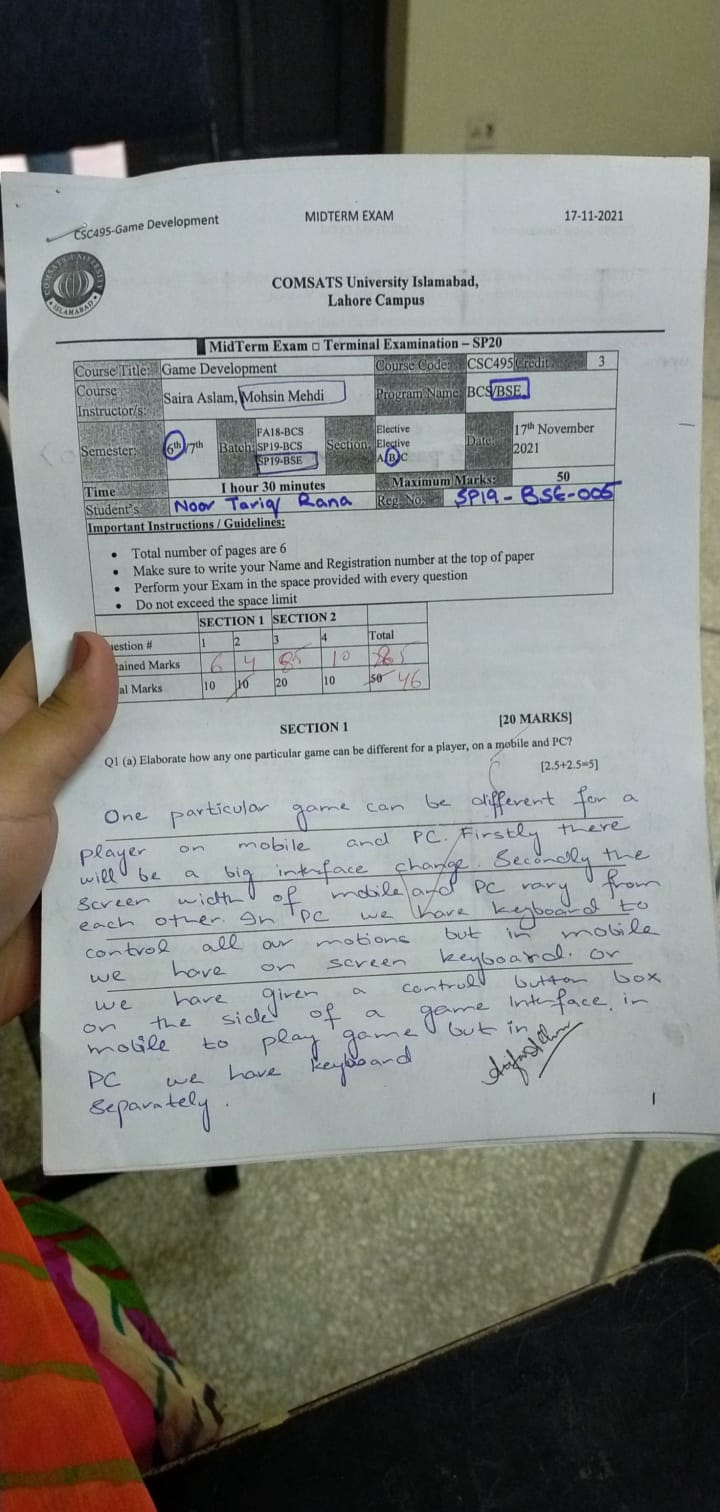 CSC495-Game Development MIDTERM EXAM 17-11-2021
COMSATS UNIVERSITY ISLAMABAD
COMSATS University Islamabad,
Lahore Campus
MidTerm Exam □ Terminal Examination – SP20
Course Title: Game Development Course Code: CSC495 Credit 3
Course Instructor/s: Saira Aslam, Mohsin Mehdi Program Name: BCS/BSE
Semester: 6th/7th Batch: FA18-BCS SP19-BCS SP19-BSE Section: Elective Elective A/B/C Date: 17th November 2021
Time 1 hour 30 minutes Maximum Marks: 50
Student's Noor Tariq Rana Reg. No. SP19-BSE-005
Important Instructions / Guidelines:
• Total number of pages are 6
• Make sure to write your Name and Registration number at the top of paper
• Perform your Exam in the space provided with every question
• Do not exceed the space limit
SECTION 1 SECTION 2
estion # 1 2 3 4 Total
tained Marks 6 4 10
al Marks 10 10 20 10 50 46
SECTION 1 [20 MARKS]
Q1 (a) Elaborate how any one particular game can be different for a player, on a mobile and PC?
[2.5+2.5=5]
One particular game can be different for a
player on mobile and PC. Firstly there
will be a big interface change. Secondly the
screen width of mobile and PC vary from
each other. In PC we have keyboard to
control all our motions but in mobile
we have on screen keyboard. or
we have given a control button box
on the side of a game Interface, in
mobile to play game but in
PC we have keyboard
separately.
1